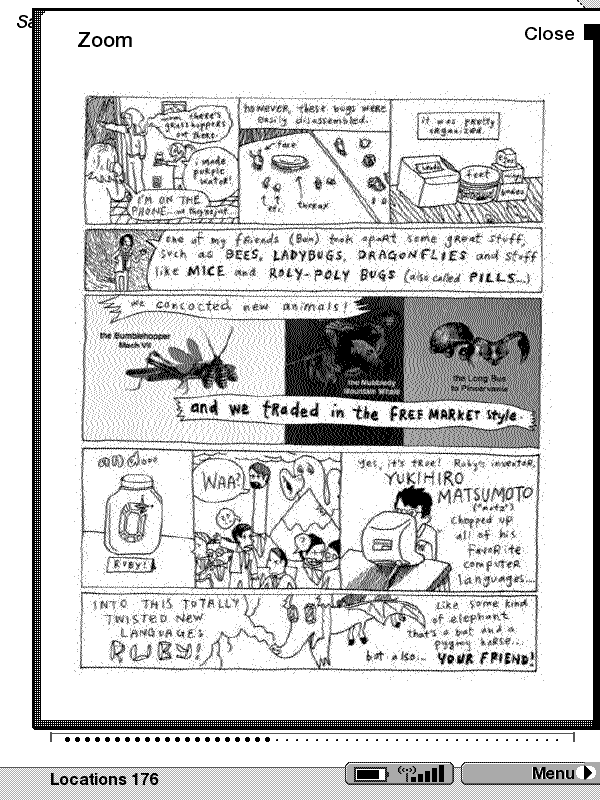 Sa
Zoom
Close
there's
grasshoppers
out there.
i made
purple
water!
I'M ON THE
PHONE
however, these bugs were
easily disassembled.
face
etc.
thorax
it was pretty
organized.
feet
one of my friends (Ben) took apart some great stuff,
such as BEES, LADYBUGS, DRAGONFLIES and stuff
like MICE and ROLY-POLY BUGS (also called PILLS...)
we concocted new animals!
the Bumblehopper
Mach VII
the Nubbledy
Mountain Whale
the Long Bus
to Pincervania
and we traded in the FREE MARKET style.
RUBY!
WAA!
yes, it's true! Ruby's inventor,
YUKIHIRO
MATSUMOTO
("matz")
chopped up
all of his
favorite
computer
languages...
INTO THIS TOTALLY
TWISTED NEW
LANGUAGES
RUBY!
Like some kind
of elephant
that's a bat and a
pygmy horse...
but also... YOUR FRIEND!
Locations 176
Menu